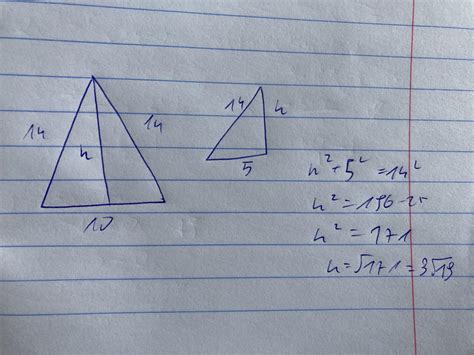 14
14
h
10
14
h
5
h² + 5² = 14²
h² = 196 - 25
h² = 171
h = √171 = 3√19